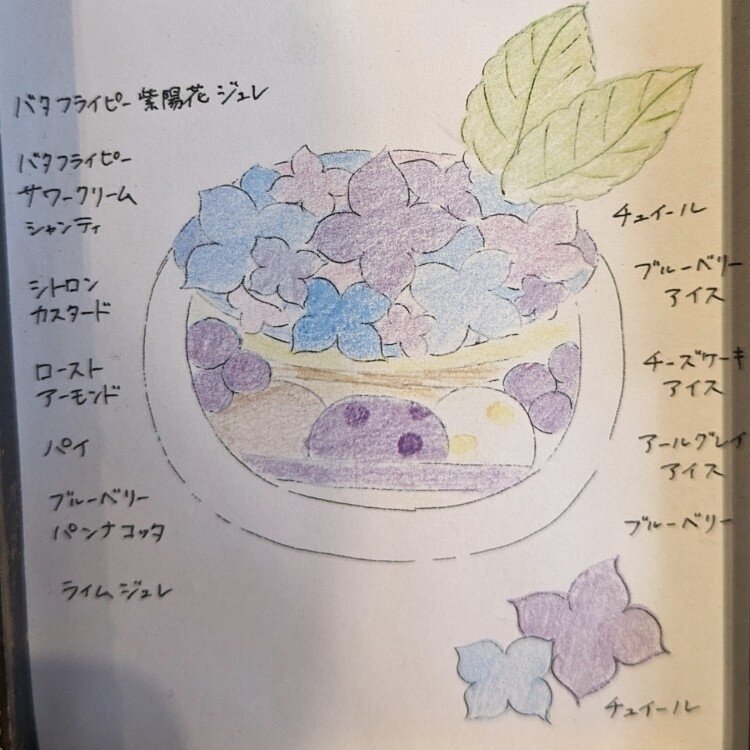 バタフライピー紫陽花ジュレ
バタフライピー
サワークリーム
シャンティ
シトロン
カスタード
ロースト
アーモンド
パイ
ブルーベリー
パンナコッタ
ライムジュレ
チュイール
ブルーベリー
アイス
チーズケーキ
アイス
アールグレイ
アイス
ブルーベリー
チュイール